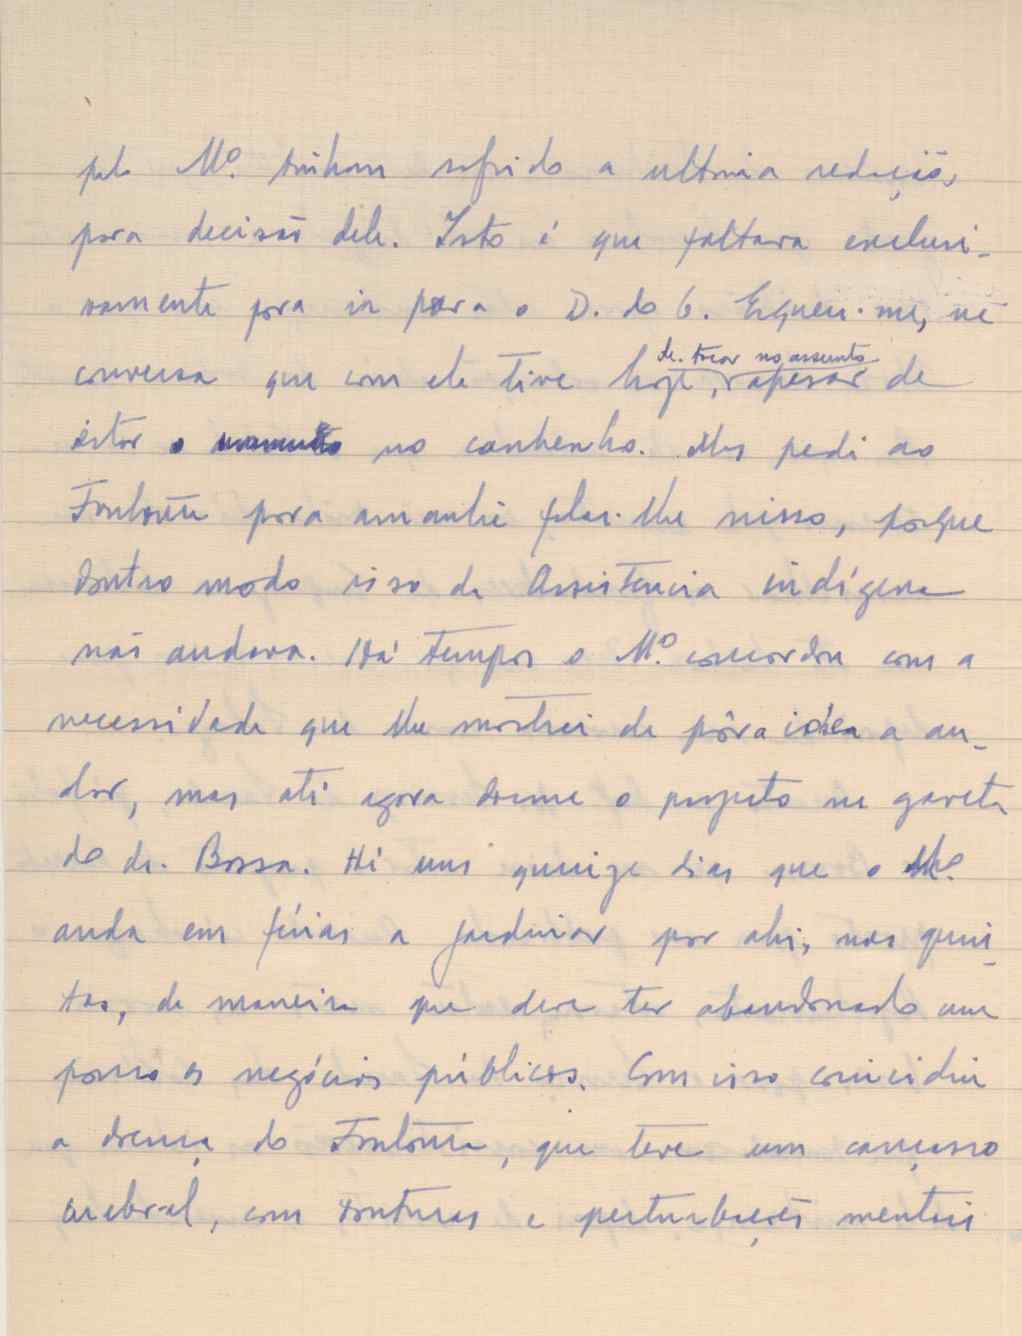 pelo Mº. tinham sofrido a ultima redação,
para decisão dele. Isto é que faltava exclusi-
vamente para ir para o D. do G. Esqueci-me, na
conversa que com ele tive hoje, de tocar no assunto apesar de
estar o no canhenho. Mas pedi ao
Fontoura para amanhã falar-lhe nisso, porque
doutro modo isso da Assistencia indígena
não andava. Há tempos o Mº. concordou com a
necessidade que lhe mostrei de pôr a idéa a an-
dar, mas até agora dorme o projeto na gaveta
do dr. Bossa. Há uns quinze dias que o Mº.
anda em férias a jardinar por ahi, nas quin-
tas, de maneira que deve ter abandonado um
pouco os negócios públicos. Com isso coincidiu
a doença do Fontoura, que teve um cansasso
cerebral, com tonturas e perturbações mentais